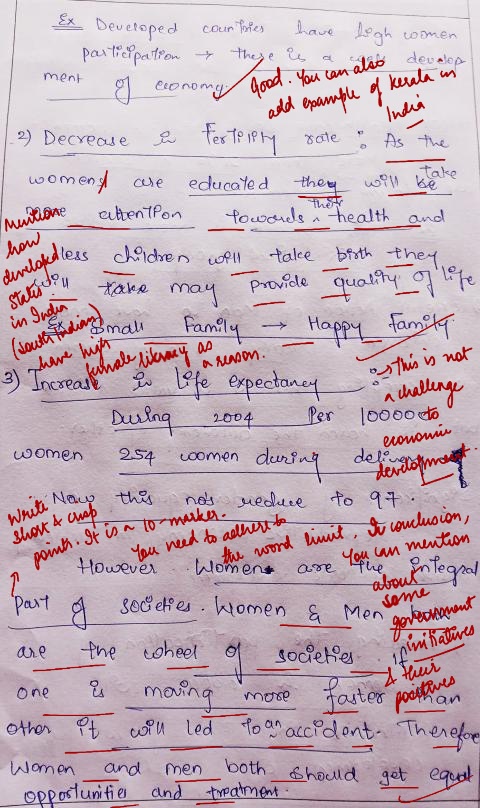 Ex Developed countries have high women
participation → these is a develop
ment of economy.
Good. You can also
add example of Kerala in
India
2) Decrease in Fertility rate : As the
women are educated they will be take
more attention towards their health and
less children will take birth they
will take may provide quality of life
Ex Small Family → Happy Family
Mention
how
developed
states
in India
(South Indian)
have high
female literacy as
a reason.
3) Increase in life expectancy :
During 2004 Per 100000
women 254 women during
Now this no's reduce to 97.
→ This is not
a challenge
to
economic
development.
Write
short & crisp
points. It is a 10-marker.
You need to adhere to
the word limit. In conclusion,
You can mention
about
some
government
initiatives
& their
positives
However Women are the integral
Part of societies. Women & Men
are the wheel of societies If
one is moving more faster than
other it will led to an accident. Therefore
Women and men both should get equal
opportunities and treatment.